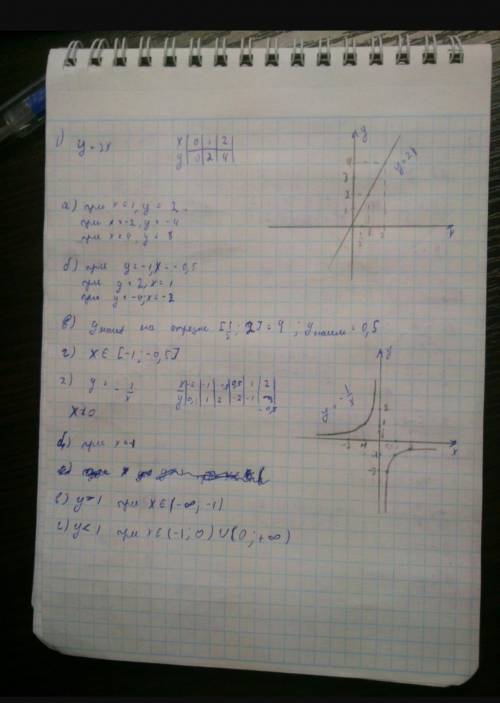 1) y = 2x
x 0 1 2
y 0 2 4
y
4
3
2
1
1 2
x
y=2x
а) при x=1, y = 2
при x=-2, y=-4
при x=4, y=8
б) при y=-1, x=-0,5
при y=2, x=1
при y=-4, x=-2
в) y наиб на отрезке [ ; 2] = 4 ; y наим = 0,5
г) x∈ [-1; -0,5]
2) y = -1/x
x -2 -1 1 2
y 1 2 -2 -1
x≠0
y
y=-1/x
x
б) при x=-1
в) y>1 при x∈(-∞; -1)
г) y<1 при x∈(-1; 0) ∪ (0; +∞)